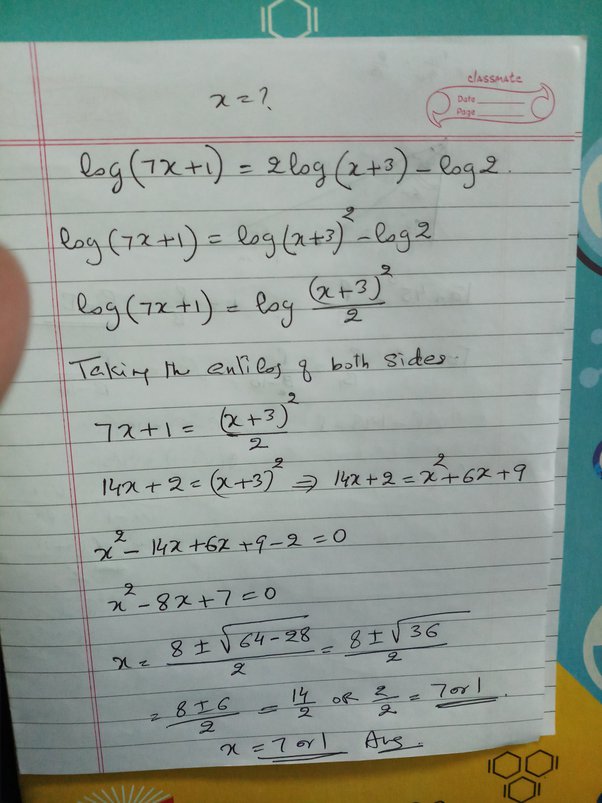 classmate
Date
Page
x = ?
log(7x+1) = 2log(x+3) - log2.
log(7x+1) = log(x+3)² - log2
log(7x+1) = log (x+3)²/2
Taking the antilog of both sides.
7x+1 = (x+3)²/2
14x+2 = (x+3)² ⇒ 14x+2 = x²+6x+9
x² - 14x+6x+9-2 = 0
x² - 8x+7 = 0
x = 8 ± √64-28/2 = 8 ± √36/2
= 8 ± 6/2 = 14/2 OR 2/2 = 7 or 1.
x = 7 or 1 Ans.